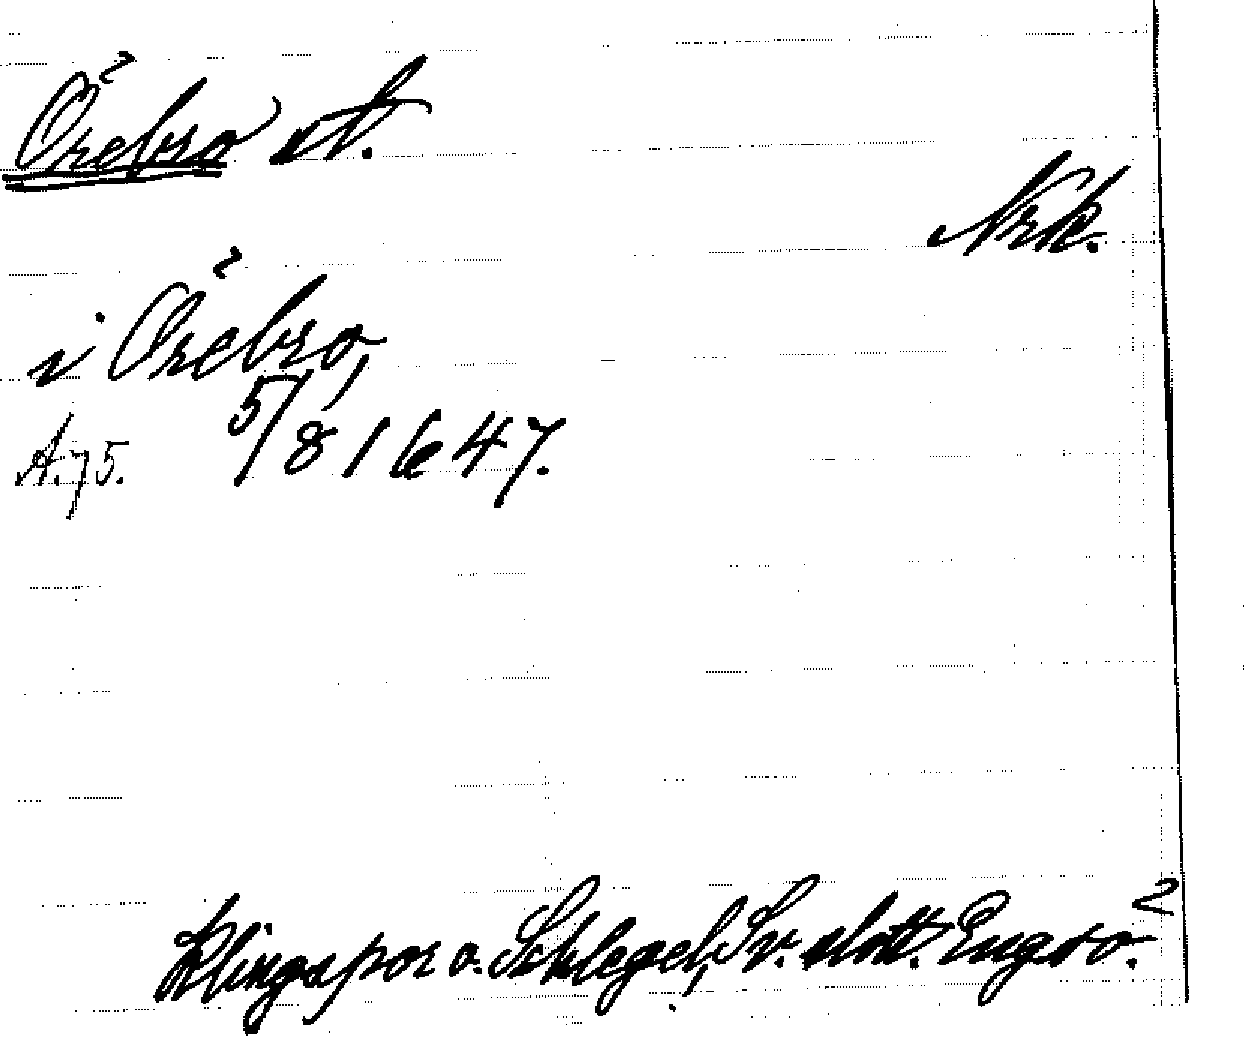 Örebro st.
Nrk.
i Örebro,
A.75. 5/8 1647.
Klingspor o. Schlegel, Sv. slott. Engsö.